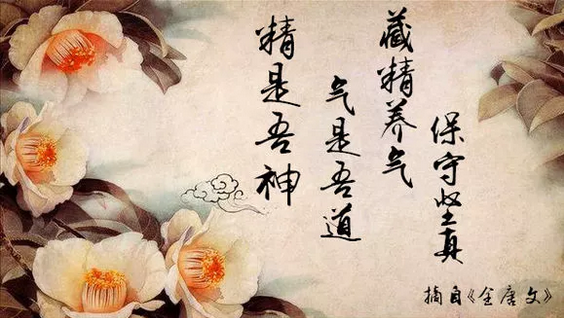 精是吾神
气是吾道
藏精养气
保守坚真
摘自《全唐文》